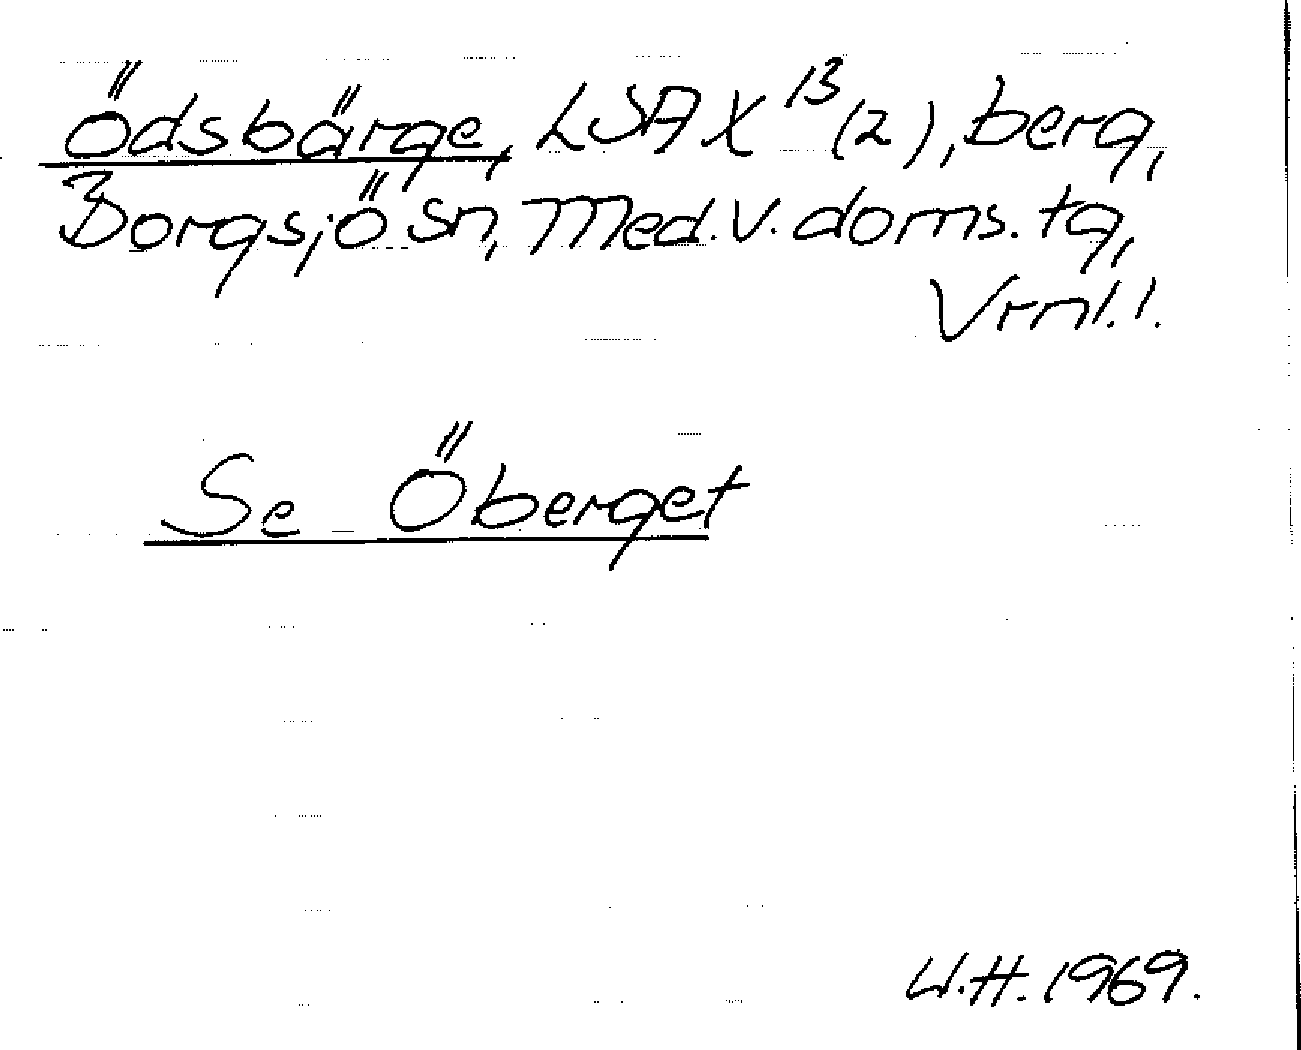 Ödsbärge, LSA X¹³(2), berg,
Borgsjö sn, Med. V. doms. tg,
Vrnl. l.
Se Öberget
U.H. 1969.